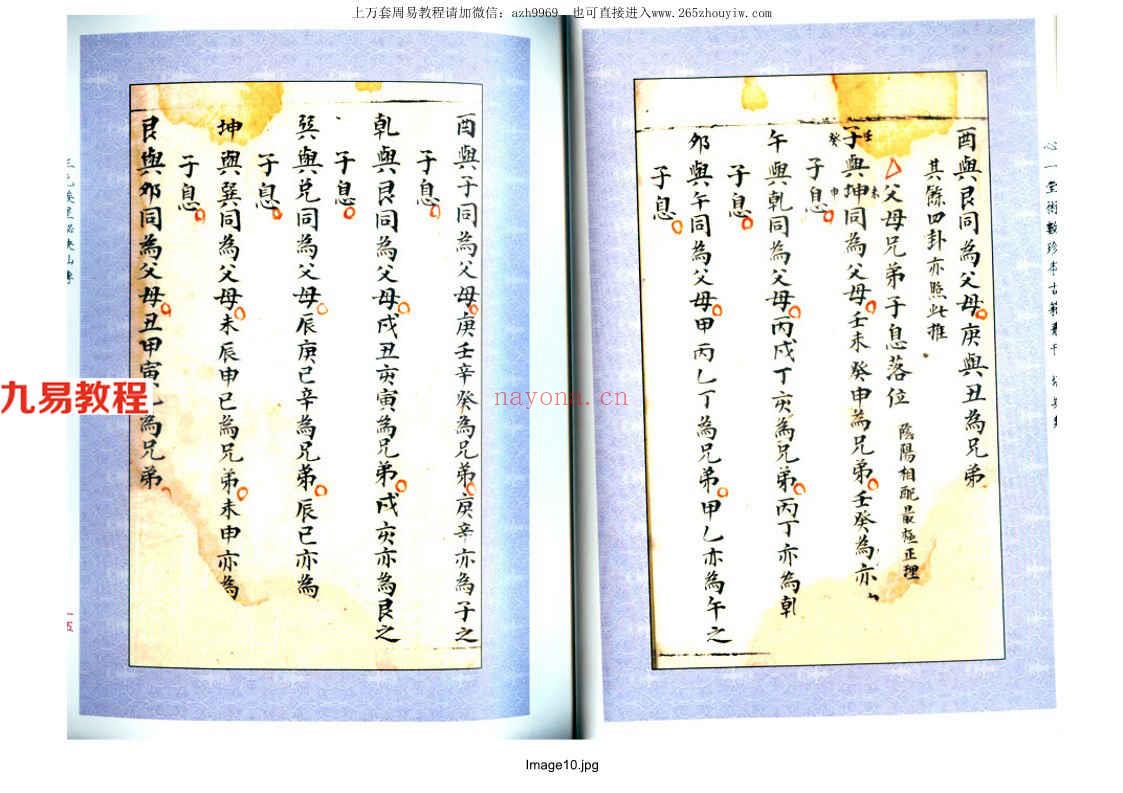 上万套周易教程请加微信：azh9969，也可直接进入www.265zhouyiw.com
心一堂術數珍本古籍叢刊
酉與艮同為父母庚與丑為兄弟
其餘四卦亦照此推
△父母兄弟子息落位 陰陽相配最極正理
子與坤同為父母壬未癸申為兄弟壬癸為亦
壬
癸
未
申
子息
午與乾同為父母丙戌丁亥為兄弟丙丁亦為乾
子息
卯與午同為父母甲丙乙丁為兄弟甲乙亦為午之
子息
酉與子同為父母庚壬辛癸為兄弟庚辛亦為子之
子息
乾與艮同為父母戌丑亥寅為兄弟戌亥亦為艮之
子息
巽與兌同為父母辰庚巳辛為兄弟辰巳亦為
子息
坤與巽同為父母未辰申巳為兄弟未申亦為
子息
艮與卯同為父母丑甲寅為兄弟
一五
九易教程
nayona.cn
Image10.jpg